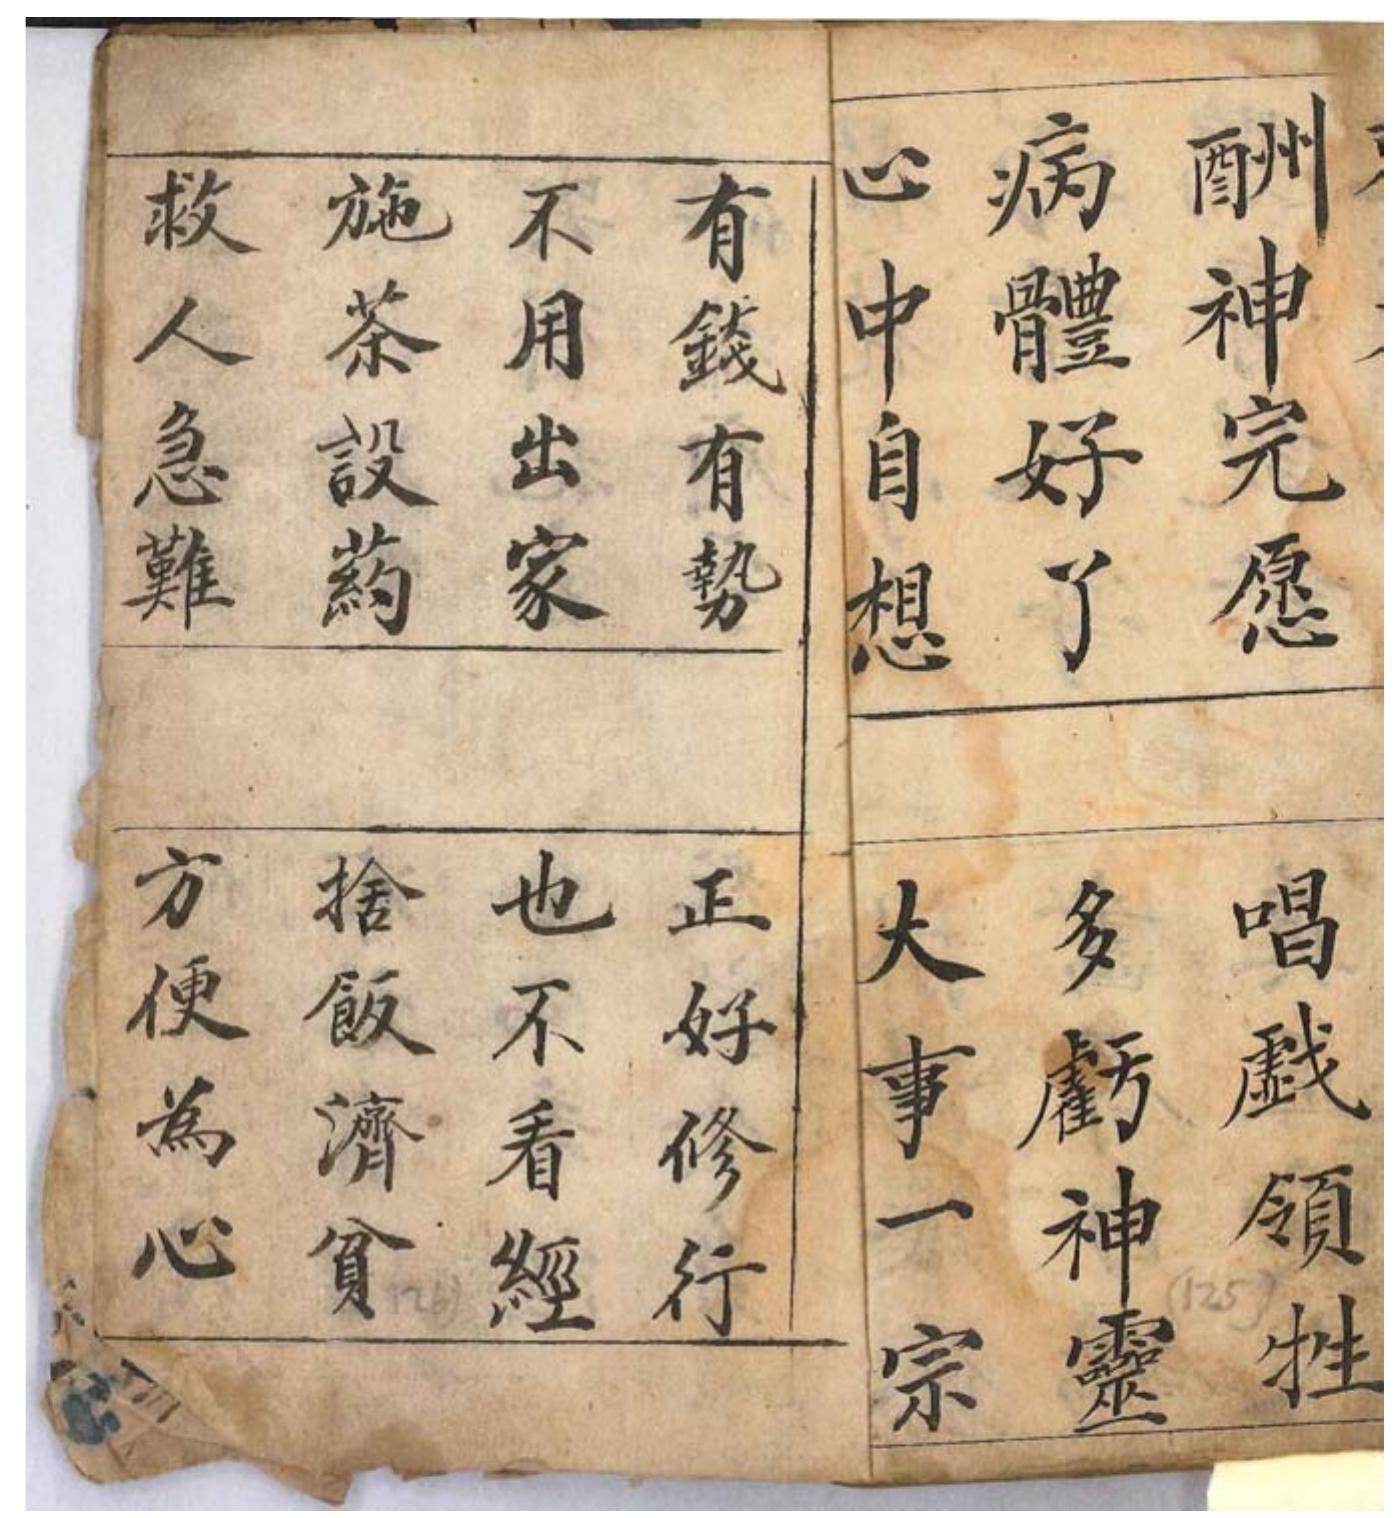 酬神完愿 唱戯領牲
病體好了 多虧神靈
心中自想 大事一宗
(125)
有錢有勢 正好修行
不用出家 也不看經
施茶設葯 捨飯濟貧
救人急難 方便為心
126)